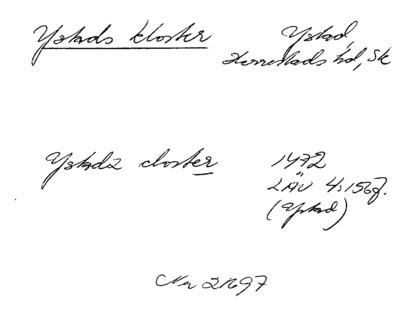 Ystads kloster
Ystad,
Herrestads hd, Sk
Ystadz closter
1472
LÄU 4:156f.
(Ystad)
Nr 21697